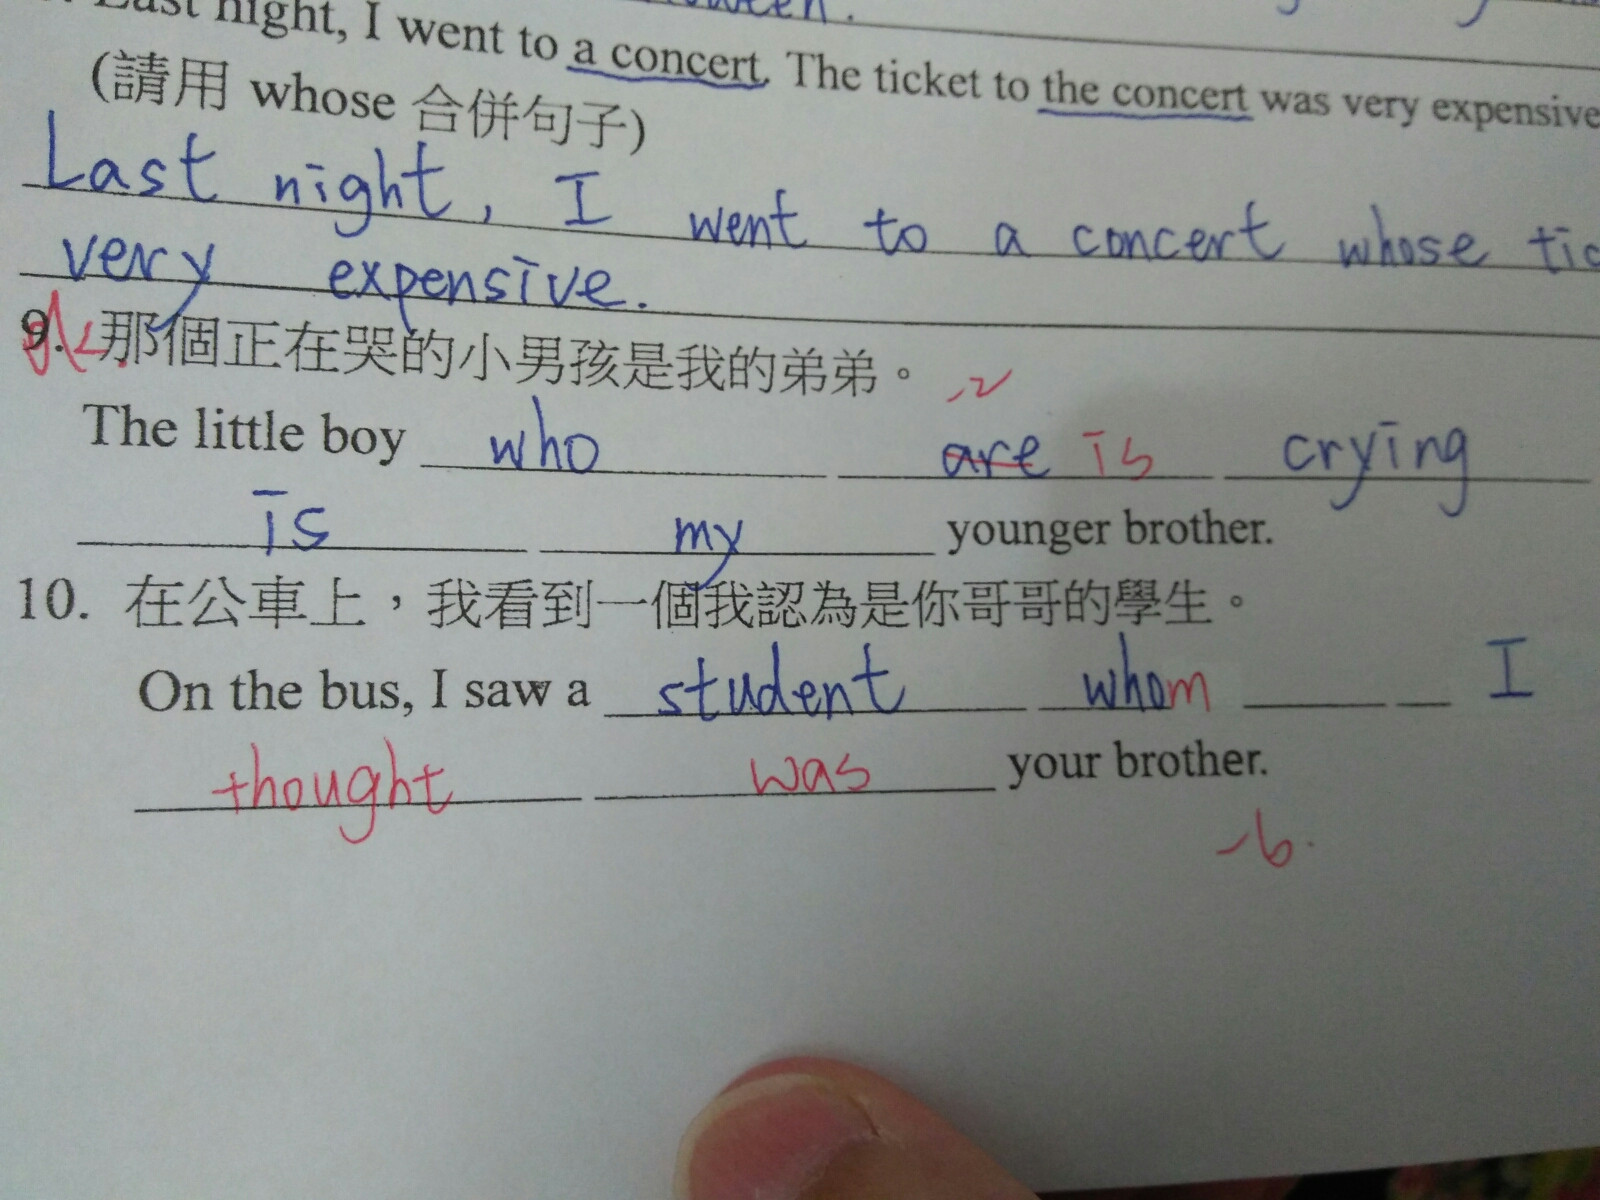 Last night, I went to a concert. The ticket to the concert was very expensive
(請用 whose 合併句子)
Last night, I went to a concert whose tic
very expensive.
9. 那個正在哭的小男孩是我的弟弟。 -2
The little boy who are is crying
is my younger brother.
10. 在公車上,我看到一個我認為是你哥哥的學生。
On the bus, I saw a student whom I
thought was your brother.
-6.